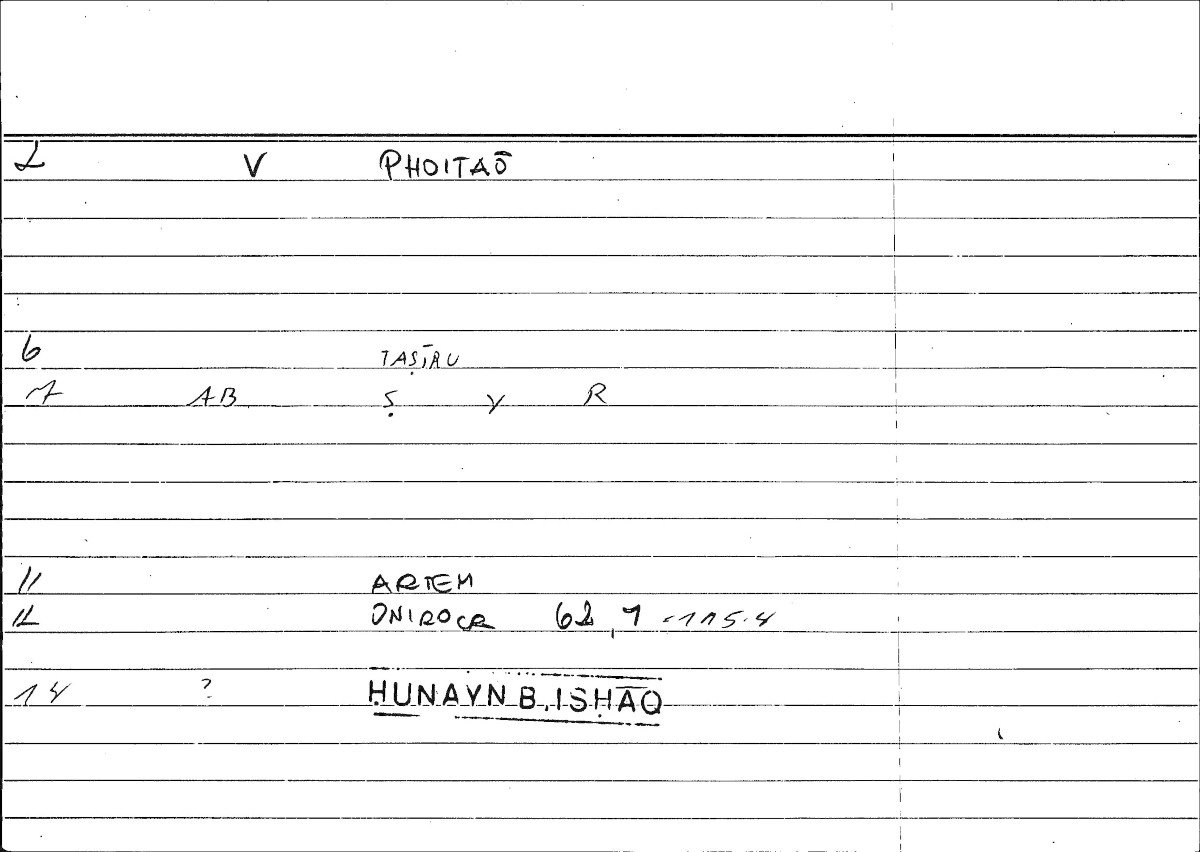 2 V PHOITAŌ
6 TAṢĪRU
7 AB Ṣ Y R
11 ARTEM
12 ONIROCR 62,1 - 115.4
14 ? ḤUNAYN B. ISḤĀQ